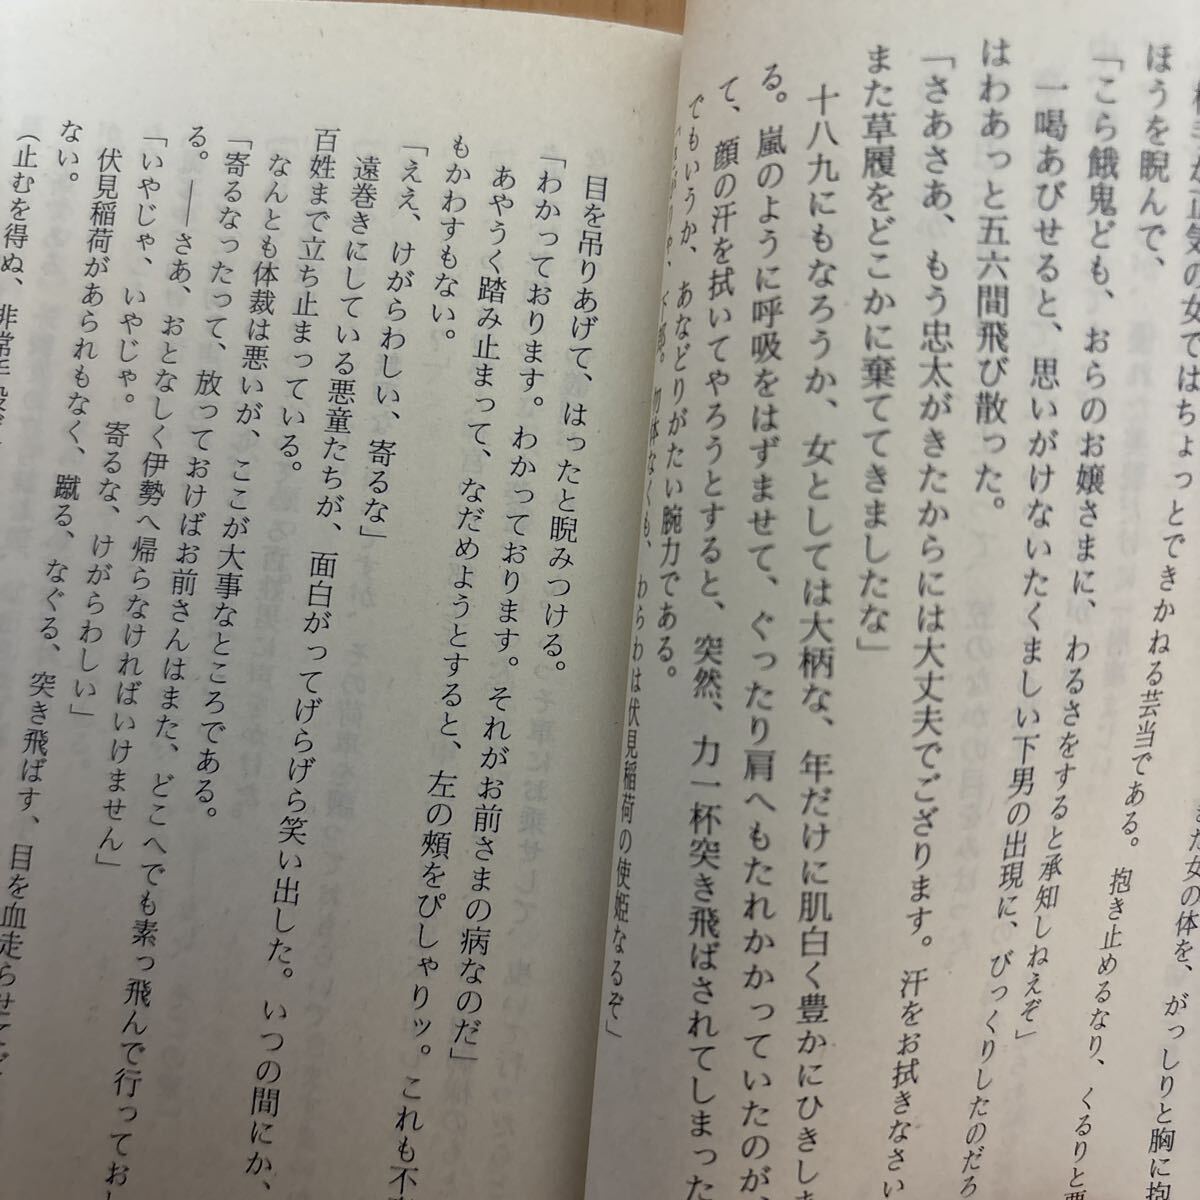 正気の女ではちょっとできかねる芸当である。抱き止めるなり、くるりと悪
ほうを睨んで、
「こら餓鬼ども、おらのお嬢さまに、わるさをすると承知しねえぞ」
一喝あびせると、思いがけないたくましい下男の出現に、びっくりしたのだろ
はわあっと五六間飛び散った。
「さあさあ、もう忠太がきたからには大丈夫でござります。汗をお拭きなさい
また草履をどこかに棄ててきましたな」
十八九にもなろうか、女としては大柄な、年だけに肌白く豊かにひきしま
る。嵐のように呼吸をはずませて、ぐったり肩へもたれかかっていたのが、
て、顔の汗を拭いてやろうとすると、突然、力一杯突き飛ばされてしまった
でもいうか、あなどりがたい腕力である。
下郎。勿体なくも、わらわは伏見稲荷の使姫なるぞ」
目を吊りあげて、はったと睨みつける。
「わかっております。わかっております。それがお前さまの病なのだ」
あやうく踏み止まって、なだめようとすると、左の頬をぴしゃりッ。これも不
もかわすもない。
「ええ、けがらわしい、寄るな」
遠巻きにしている悪童たちが、面白がってげらげら笑い出した。いつの間にか、
百姓まで立ち止まっている。
なんとも体裁は悪いが、ここが大事なところである。
「寄るなったって、放っておけばお前さんはまた、どこへでも素っ飛んで行ってお
る。――さあ、おとなしく伊勢へ帰らなければいけません」
「いやじゃ、いやじゃ。寄るな、けがらわしい」
伏見稲荷があられもなく、蹴る、なぐる、突き飛ばす、目を血走らせて
ない。
（止むを得ぬ、非常手段だ